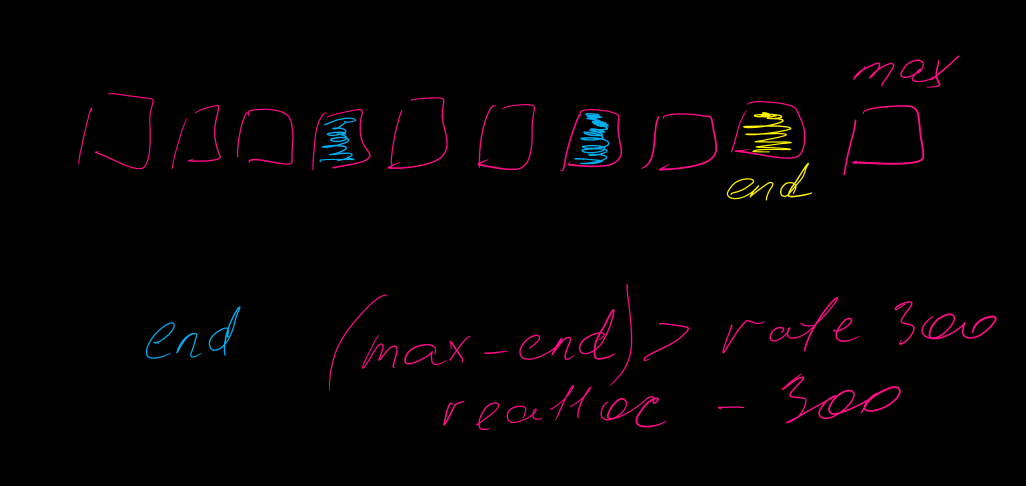 max
end
end (max-end) > rate 300
realloc - 300